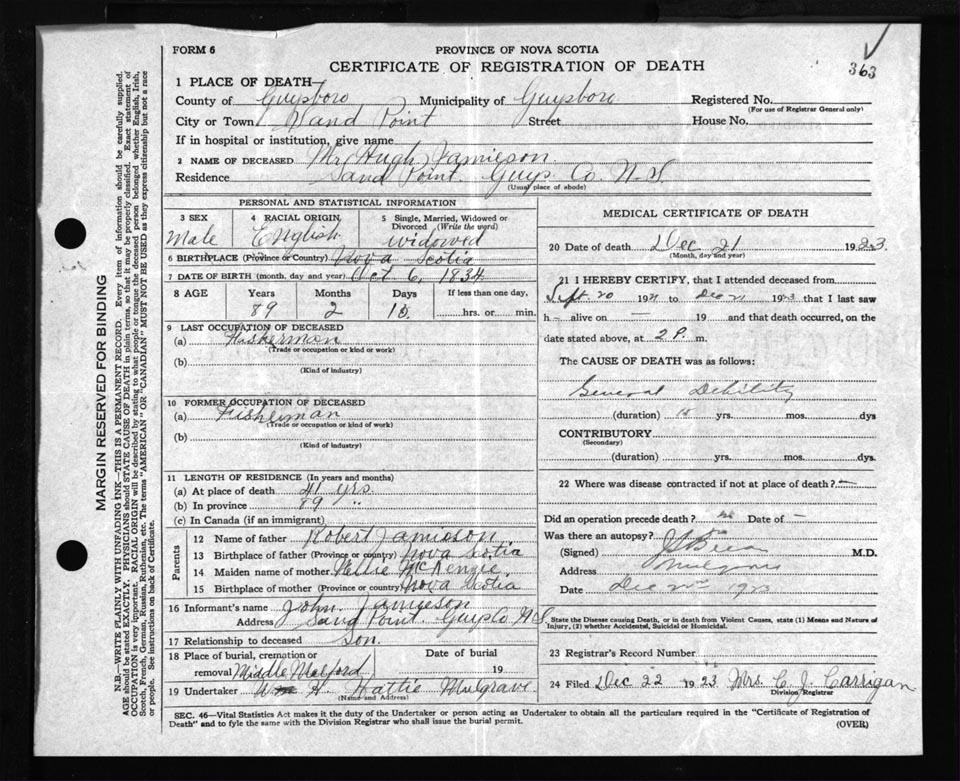 FORM 6
PROVINCE OF NOVA SCOTIA
CERTIFICATE OF REGISTRATION OF DEATH
363
1 PLACE OF DEATH—
County of Guysboro Municipality of Guysboro Registered No.
(For use of Registrar General only)
City or Town Sand Point Street House No.
If in hospital or institution, give name
2 NAME OF DECEASED Mr Hugh Jamieson.
Residence Sand Point. Guys. Co. N.S.
(Usual place of abode)
PERSONAL AND STATISTICAL INFORMATION
3 SEX Male
4 RACIAL ORIGIN English
5 Single, Married, Widowed or Divorced (Write the word) widowed
6 BIRTHPLACE (Province or Country) Nova Scotia
7 DATE OF BIRTH (month, day and year) Oct 6, 1834
8 AGE Years Months Days If less than one day,
89 2 10. hrs. or min.
9 LAST OCCUPATION OF DECEASED
(a) Fisherman
(Trade or occupation or kind or work)
(b)
(Kind of industry)
10 FORMER OCCUPATION OF DECEASED
(a) Fisherman
(Trade or occupation or kind of work)
(b)
(Kind of industry)
11 LENGTH OF RESIDENCE (In years and months)
(a) At place of death 41 yrs.
(b) In province 89 "
(c) In Canada (if an immigrant)
Parents
12 Name of father Robert Jamieson
13 Birthplace of father (Province or country) Nova Scotia
14 Maiden name of mother Nellie McKenzie
15 Birthplace of mother (Province or country) Nova Scotia
16 Informant's name John Jamieson
Address Sand Point. Guys Co N.S.
17 Relationship to deceased Son.
18 Place of burial, cremation or removal Middle Melford Date of burial 19
19 Undertaker H. Hattie Mulgrave
(Name and Address)
MEDICAL CERTIFICATE OF DEATH
20 Date of death Dec 21 1923
(Month, day and year)
21 I HEREBY CERTIFY, that I attended deceased from
Sept. 20 1921 to Dec 21 1923 that I last saw
h — alive on — 19 and that death occurred, on the
date stated above, at 2 P. m.
The CAUSE OF DEATH was as follows:
General Debility
(duration) yrs. mos. dys
CONTRIBUTORY
(Secondary)
(duration) yrs. mos. dys.
22 Where was disease contracted if not at place of death? —
Did an operation precede death? no Date of —
Was there an autopsy? no
(Signed) M.D.
Address Mulgrave
Date Dec 1923
State the Disease causing Death, or in death from Violent Causes, state (1) Means and Nature of Injury, (2) whether Accidental, Suicidal or Homicidal.
23 Registrar's Record Number
24 Filed Dec 22 1923 Mrs. C. J. Carrigan
Division Registrar
SEC. 46—Vital Statistics Act makes it the duty of the Undertaker or person acting as Undertaker to obtain all the particulars required in the "Certificate of Registration of
Death" and to fyle the same with the Division Registrar who shall issue the burial permit.
(OVER)
MARGIN RESERVED FOR BINDING
N.B.—WRITE PLAINLY WITH UNFADING INK—THIS IS A PERMANENT RECORD. Every item of information should be carefully supplied.
AGE should be stated EXACTLY. PHYSICIANS should STATE CAUSE OF DEATH in plain terms, so that it may be properly classified. Exact statement of
OCCUPATION is very important. RACIAL ORIGIN will be described by stating to what people or tongue the deceased person belonged whether English, Irish,
Scotch, French, German, Russian, Ruthenian, etc. The terms "AMERICAN" OR "CANADIAN" MUST NOT BE USED as they express citizenship but not a race
or people. See instructions on back of Certificate.